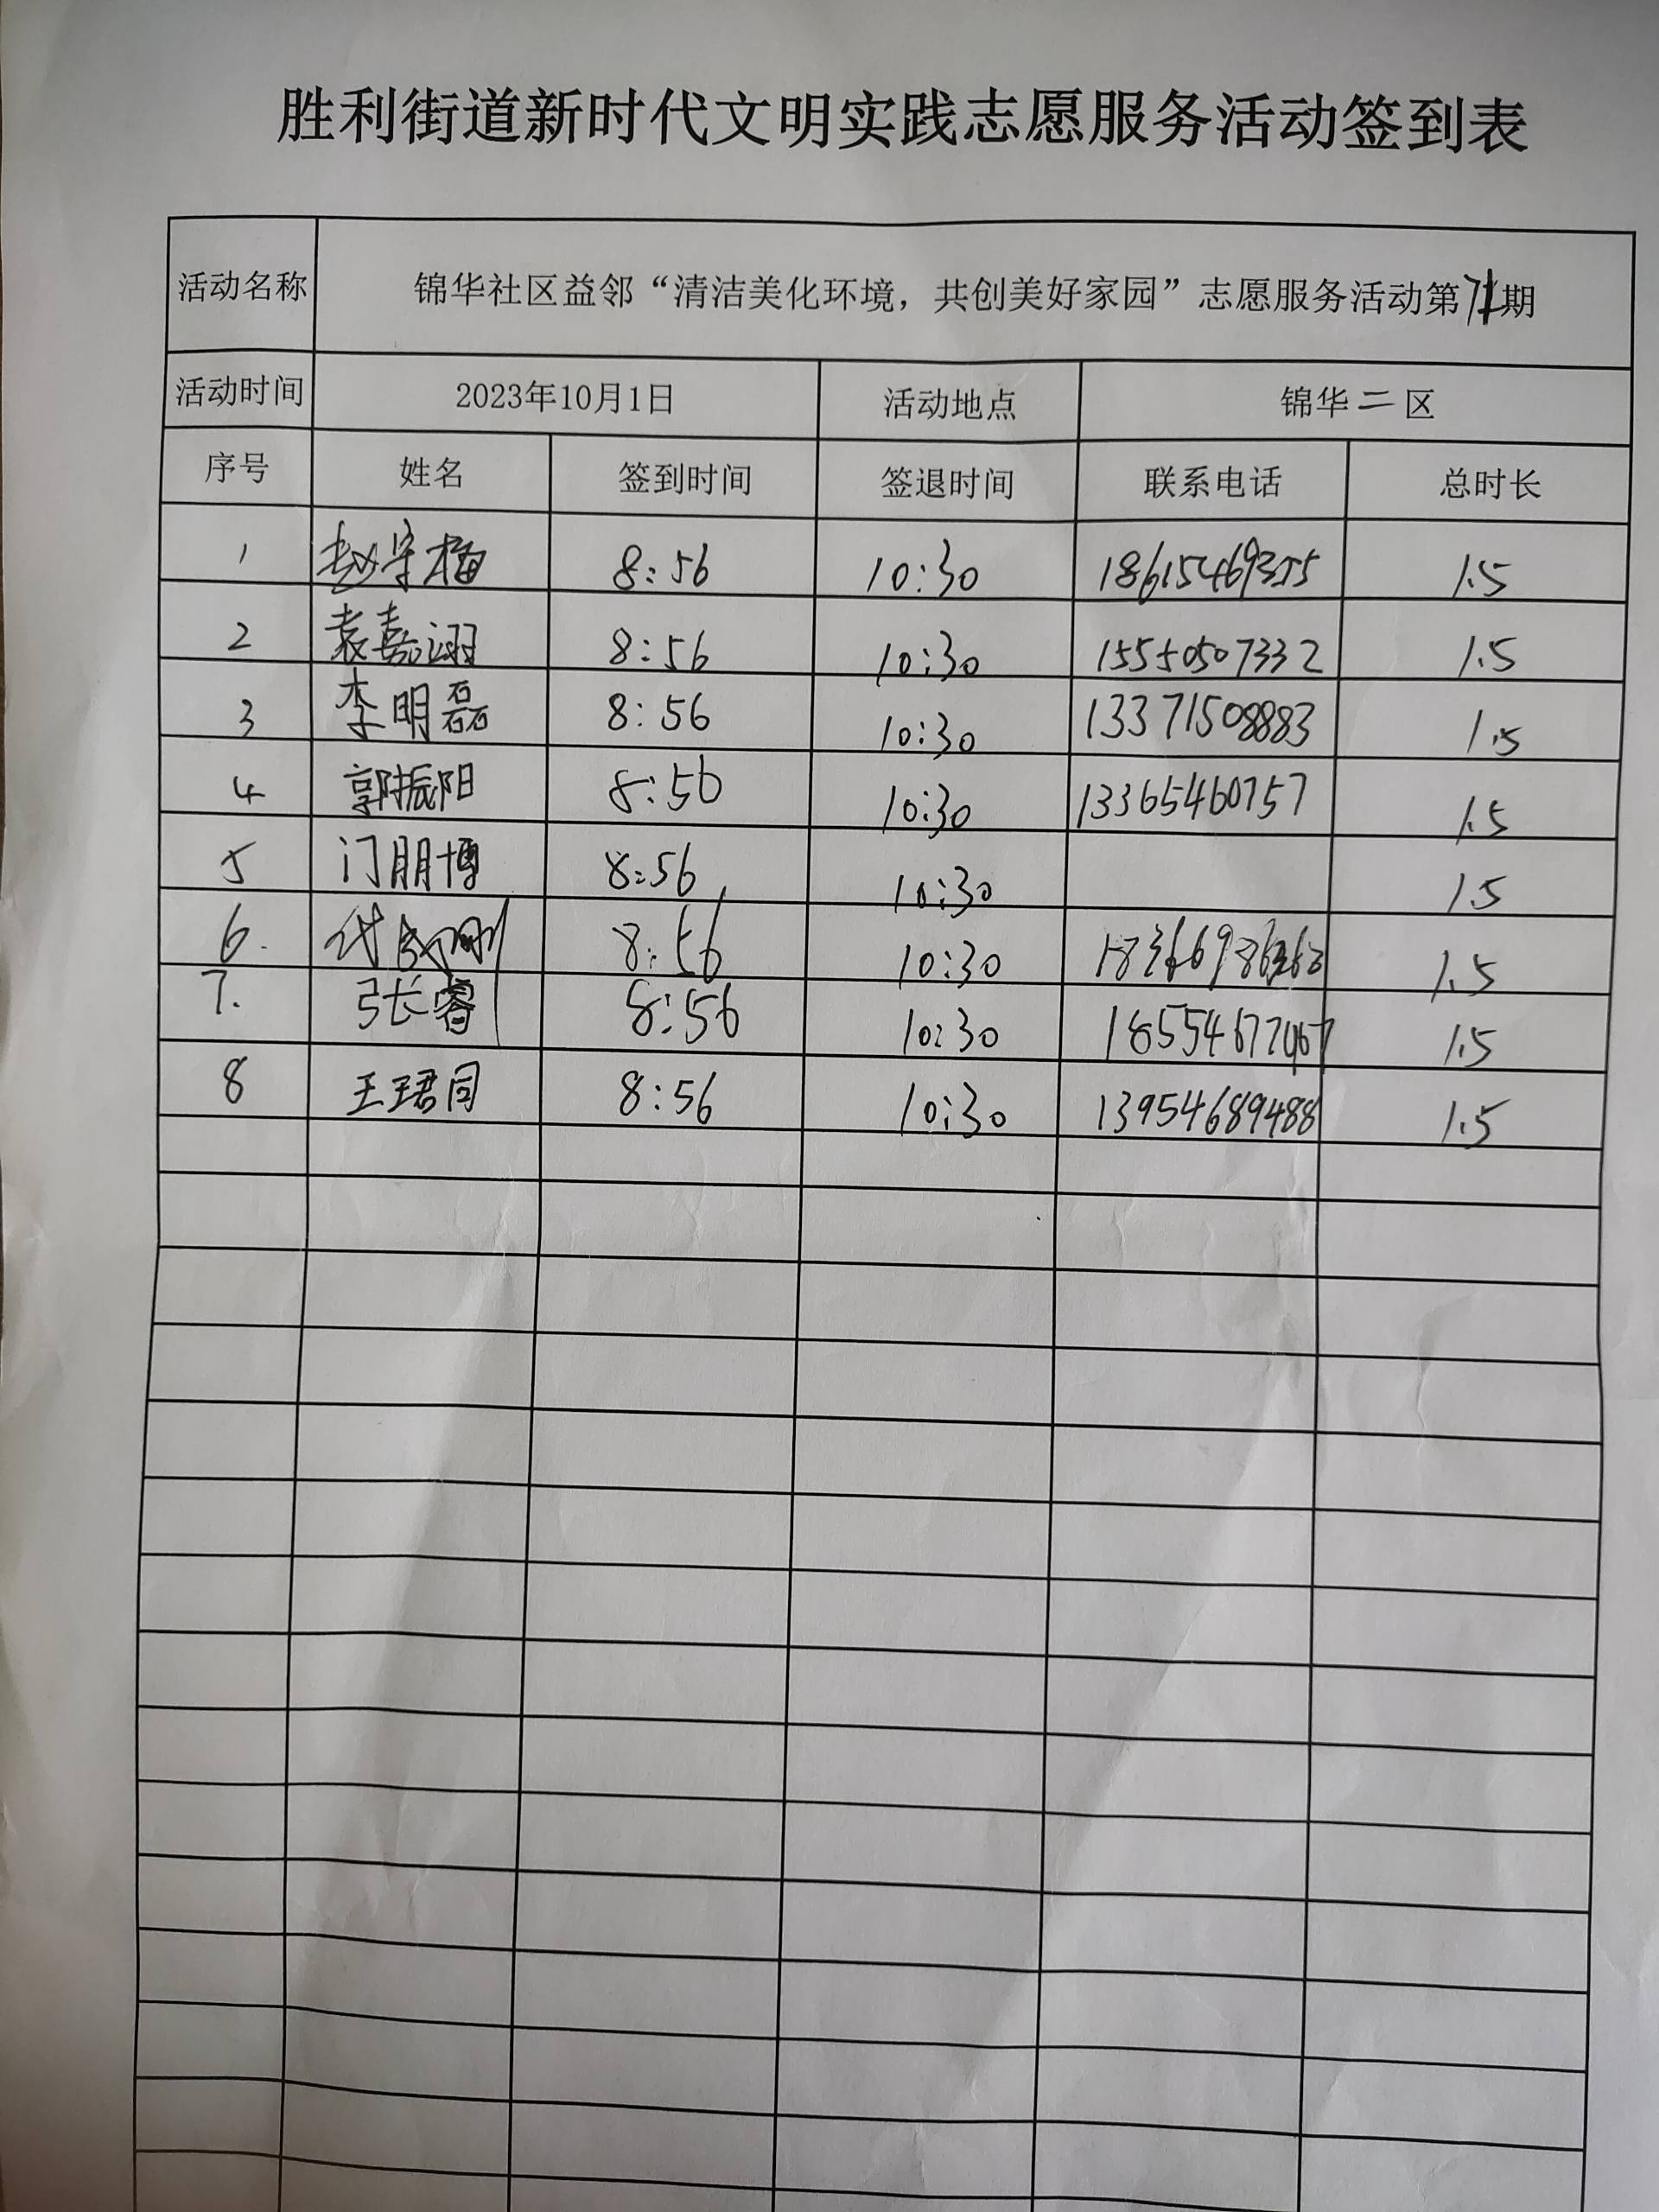 胜利街道新时代文明实践志愿服务活动签到表
活动名称 锦华社区益邻“清洁美化环境，共创美好家园”志愿服务活动第71期
活动时间 2023年10月1日 活动地点 锦华二区
序号 姓名 签到时间 签退时间 联系电话 总时长
1 赵守梅 8:56 10:30 18615469355 1.5
2 袁嘉翊 8:56 10:30 15550507332 1.5
3 李明磊 8:56 10:30 13371508883 1.5
4 郭振阳 8:56 10:30 13365460757 1.5
5 门朋博 8:56 10:30 1.5
6. 8:56 10:30 1.5
7. 张睿 8:56 10:30 18554677067 1.5
8 王珺同 8:56 10:30 13954689488 1.5